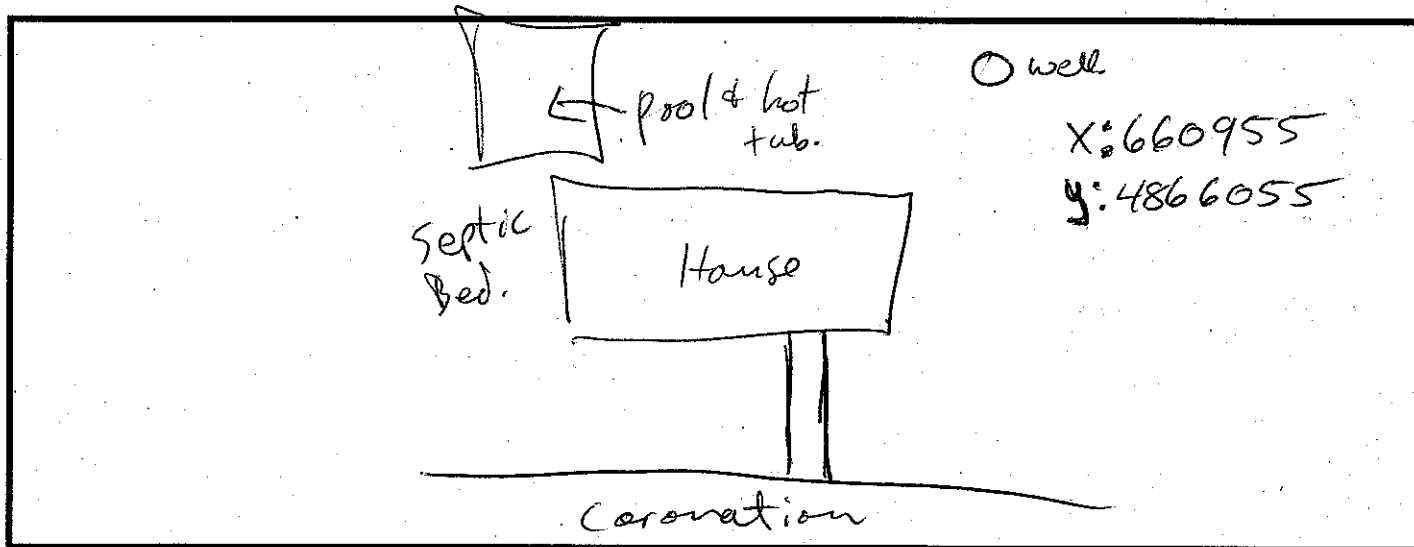 well
pool & hot
tub.
X: 660955
y: 4866055
Septic
Bed.
House
Coronation